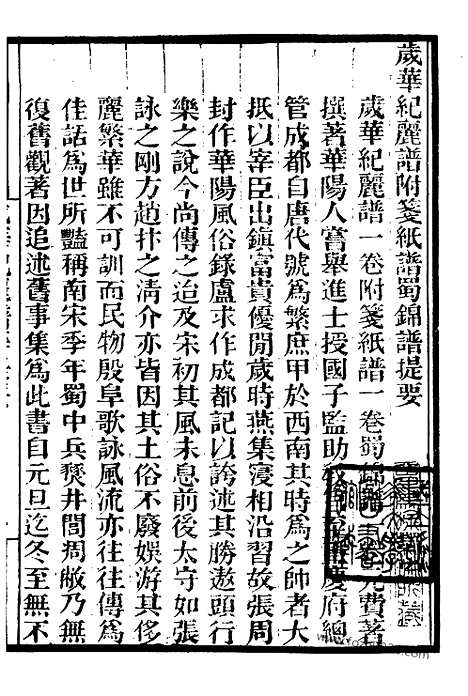 歲華紀麗譜附箋紙譜蜀錦譜提要
歲華紀麗譜一卷附箋紙譜一卷蜀錦譜一卷元費著
撰著華陽人嘗舉進士授國子監助教官至重慶府總
管成都自唐代號為繁庶甲於西南其時為之帥者大
抵以宰臣出鎮富貴優閒歲時燕集寖相沿習故張周
封作華陽風俗錄盧求作成都記以誇述其勝遨頭行
樂之說今尚傳之迨及宋初其風未息前後太守如張
詠之剛方趙抃之清介亦皆因其土俗不廢娛游其侈
麗繁華雖不可訓而民物殷阜歌詠風流亦往往傳為
佳話為世所豔稱南宋季年蜀中兵燹井閭周敝乃無
復舊觀著因追述舊事集為此書自元旦迄冬至無不